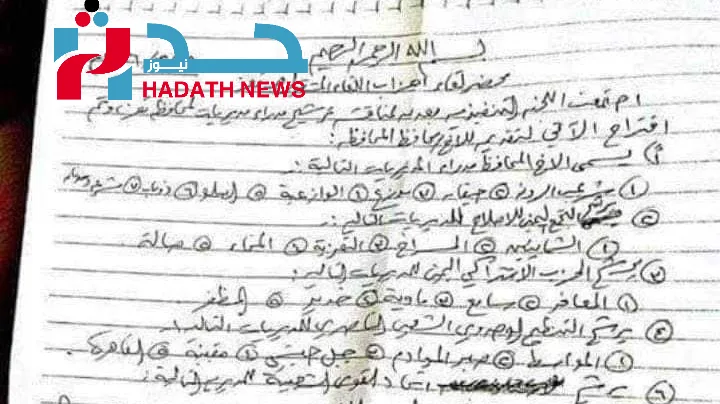 حدث نيوز
HADATH NEWS
بسم الله الرحمن الرحيم
محضر لقاء احزاب اللقاء المشترك
اجتمعت اللجنة التنفيذية لمناقشة ترشيح مدراء مديريات المحافظة وتم
اقتراح الآتي لتقديمه للاخ محافظ المحافظة:
١) يسمي الاخ المحافظ مدراء المديريات التالية:
١) شرعب الرونة ٢) حيفان ٣) موزع ٤) الوازعية ٥) السلو ٦) ذوباب ٧)
٢) يرشح التجمع اليمني للاصلاح للمديريات التالية:
١) الشمايتين ٢) المسراخ ٣) التعزية ٤) المخاء ٥) صالة
٣) يرشح الحزب الاشتراكي اليمني للمديريات التالية:
١) المعافر ٢) سامع ٣) ماوية ٤) خدير ٥) المظفر
٤) يرشح التنظيم الوحدوي الشعبي الناصري للمديريات التالية:
١) المواسط ٢) صبر الموادم ٣) جبل حبشي ٤) مقبنة ٥) القاهرة
٥) يرشح اتحاد القوى الشعبية للمديرية التالية: